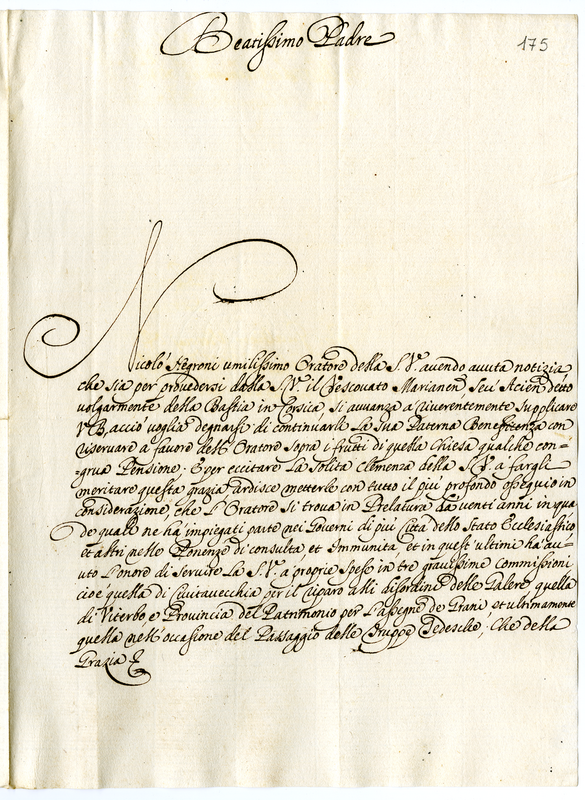 Beatissimo Padre
175
Nicolò Negroni umilissimo Oratore della S. V. avendo avuta notizia
che sia per provedersi dalla S. V. il Vescovato Marianen, seu Acien detto
volgarmente della Bastia in Corsica si avvanza a riverentemente supplicare
V. B. acciò voglia degnarsi di continuarle La Sua Paterna Beneficenza con
riservare a favore dell' Oratore sopra i frutti di quella Chiesa qualche con=
=grua Pensione. E per eccitare La solita clemenza della S. V. a fargli
meritare questa grazia ardisce metterle con tutto il più profondo ossequio in
considerazione, che L'Oratore si trova in Prelatura da venti anni in qua
de quali ne ha impiegati parte nei Governi di più Città dello Stato Ecclesiastico
et altri nelle Ponenze di consulta, et Immunità, et in quest' ultimi ha av=
uto L'onore di servire La S. V. a proprie spese in tre gravissime commissioni
cioè quella di Civitavecchia per il riparo alli disordini delle Galere, quella
di Viterbo e Provincia del Patrimonio per L'assegne de Grani et ultimamente
quella nell' occasione del Passaggio delle Truppe Tedesche; Che della
Grazia &